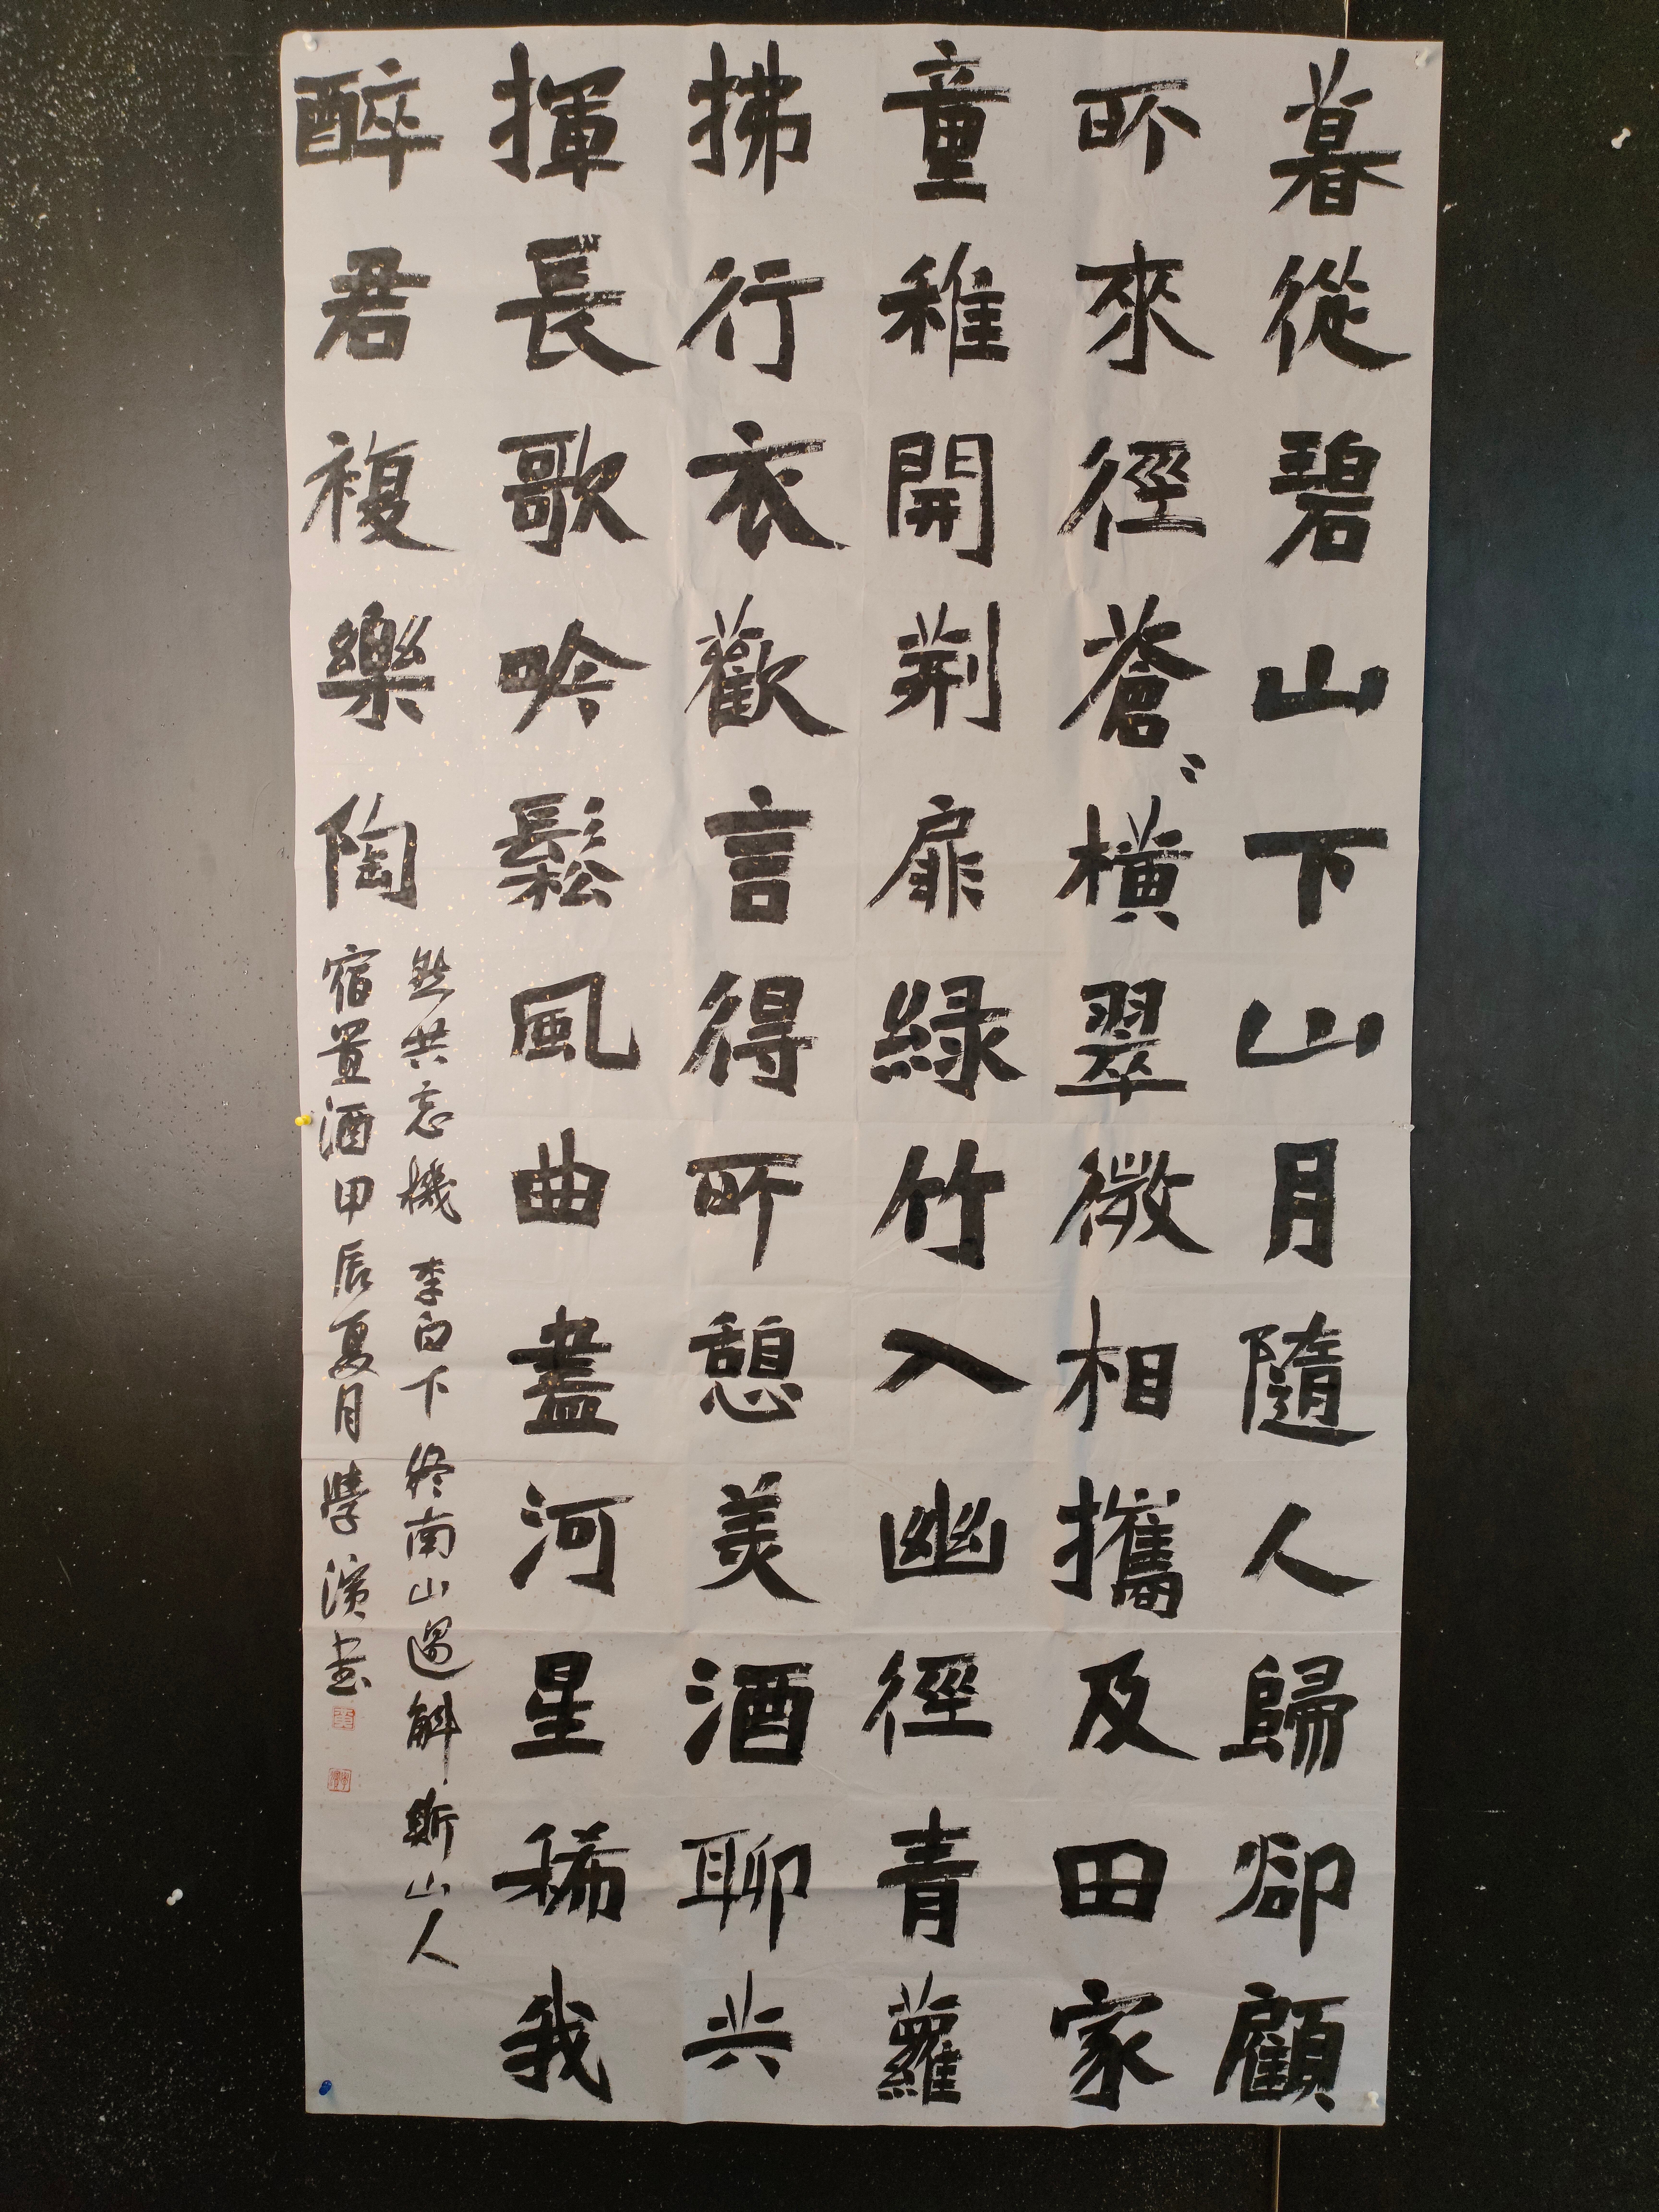 暮從碧山下山月隨人歸卻顧
所來徑蒼〻橫翠微相攜及田家
童稚開荆扉緑竹入幽徑青蘿
拂行衣歡言得所憩美酒聊共
揮長歌吟鬆風曲盡河星稀我
醉君複樂陶
然共忘機 李白下终南山過斛斯山人
宿置酒甲辰夏月學濱书